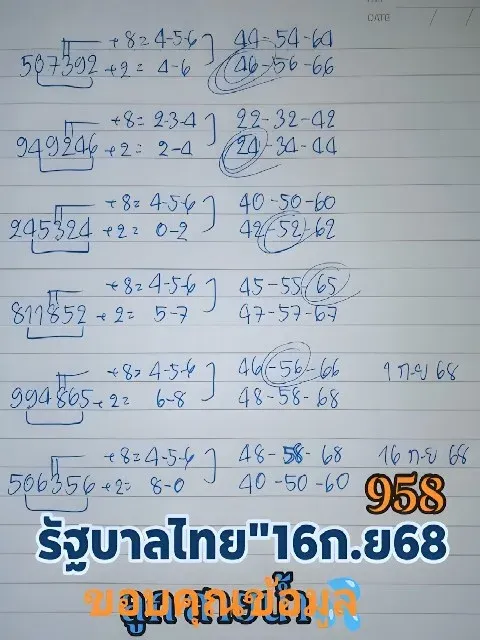 DATE / /
+8= 4-5-6 44-54-64
507392 +2= 4-6 46-56-66
+8= 2-3-4 22-32-42
949246 +2= 2-4 24-34-44
+8= 4-5-6 40-50-60
245324 +2= 0-2 42-52-62
+8= 4-5-6 45-55-65
811852 +2= 5-7 47-57-67
+8= 4-5-6 46-56-66 1 ก.ย 68
994865 +2= 6-8 48-58-68
+8= 4-5-6 48-58-68 16 ก.ย 68
506356 +2= 8-0 40-50-60
958
รัฐบาลไทย"16ก.ย68
ขอบคุณข้อมูล